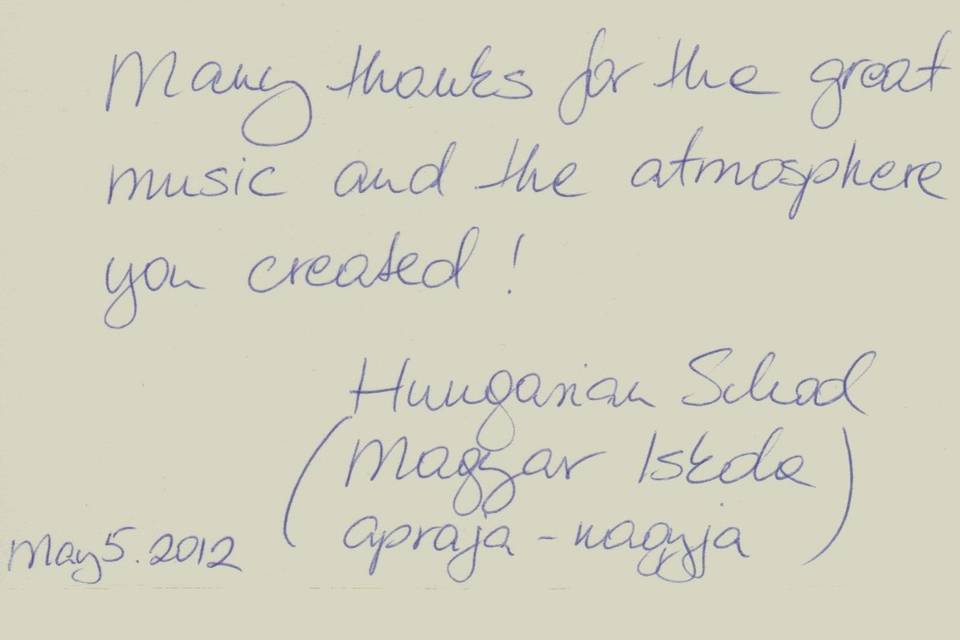 Many thanks for the great
music and the atmosphere
you created!
Hungarian School
(Magyar Iskola
apraja-nagyja)
May 5. 2012